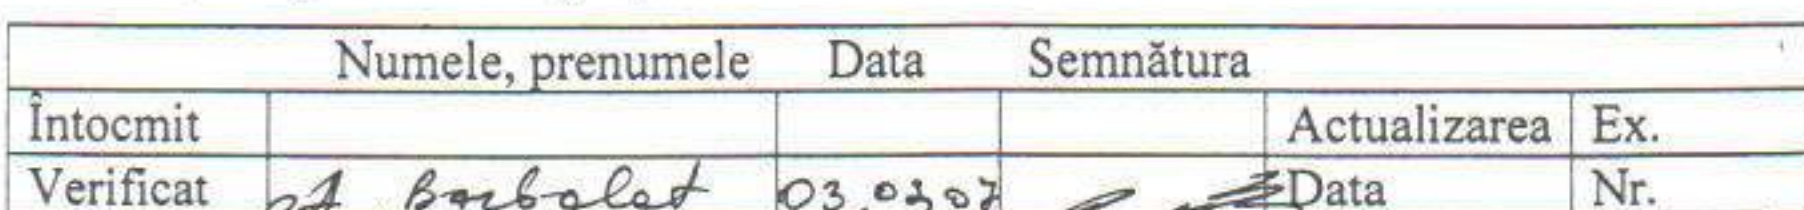 Numele, prenumele Data Semnătura
Întocmit Actualizarea Ex.
Verificat A Barbalat Data Nr.